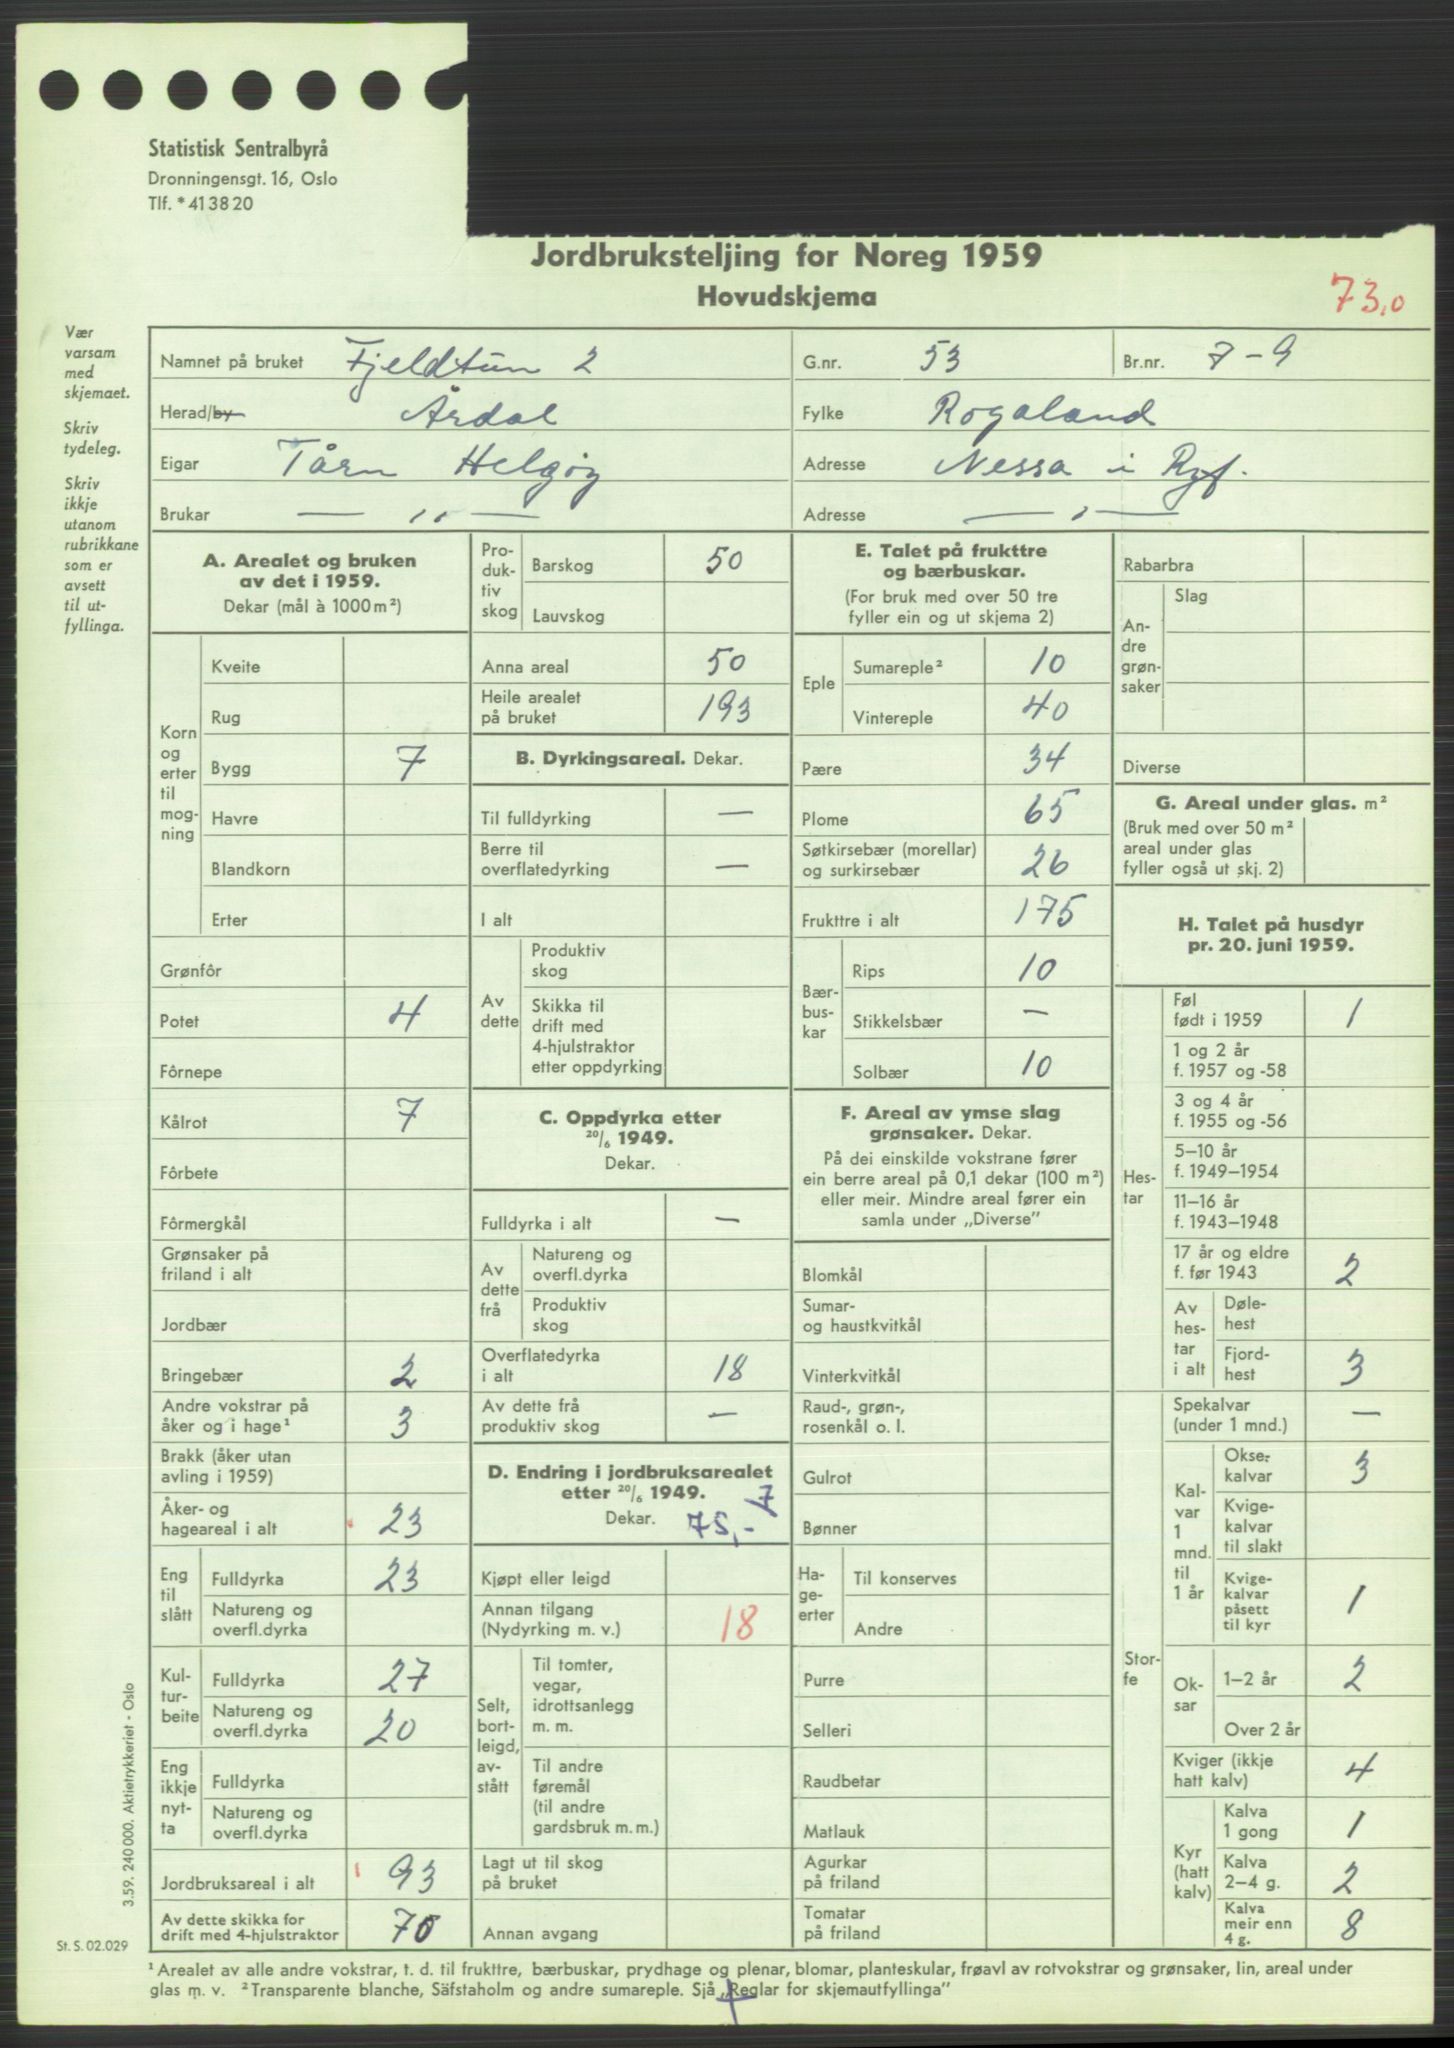 Statistisk Sentralbyrå
Dronningensgt. 16, Oslo
Tlf. * 41 38 20
Jordbruksteljing for Noreg 1959
Hovudskjema
73,0
Vær
varsam
med
skjemaet.
Skriv
tydeleg.
Skriv
ikkje
utanom
rubrikkane
som er
avsett
til ut-
fyllinga.
Namnet på bruket Fjeldtun 2 G.nr. 53 Br.nr. 7-9
Herad/by Årdal Fylke Rogaland
Eigar Tårn Helgøy Adresse Nessa i Ryf.
Brukar — ,, — Adresse — ,, —
A. Arealet og bruken
av det i 1959.
Dekar (mål à 1000 m²)
Korn og erter til mog-ning
Kveite
Rug
Bygg 7
Havre
Blandkorn
Erter
Grønfôr
Potet 4
Fôrnepe
Kålrot 7
Fôrbete
Fôrmergkål
Grønsaker på
friland i alt
Jordbær
Bringebær 2
Andre vokstrar på
åker og i hage¹ 3
Brakk (åker utan
avling i 1959)
Åker- og
hageareal i alt 23
Eng til slått
Fulldyrka 23
Natureng og
overfl.dyrka
Kul-tur-beite
Fulldyrka 27
Natureng og
overfl.dyrka 20
Eng ikkje nyt-ta
Fulldyrka
Natureng og
overfl.dyrka
Jordbruksareal i alt 93
Av dette skikka for
drift med 4-hjulstraktor 70
Pro-duk-tiv skog
Barskog 50
Lauvskog
Anna areal 50
Heile arealet
på bruket 193
B. Dyrkingsareal. Dekar.
Til fulldyrking —
Berre til
overflatedyrking —
I alt
Av dette
Produktiv
skog
Skikka til
drift med
4-hjulstraktor
etter oppdyrking
C. Oppdyrka etter
20/6 1949.
Dekar.
Fulldyrka i alt —
Av dette frå
Natureng og
overfl.dyrka
Produktiv
skog
Overflatedyrka
i alt 18
Av dette frå
produktiv skog —
D. Endring i jordbruksarealet
etter 20/6 1949. 7
Dekar. 75,-
Kjøpt eller leigd
Annan tilgang
(Nydyrking m. v.) 18
Selt, bort-leigd, av-stått
Til tomter,
vegar,
idrottsanlegg
m. m.
Til andre
føremål
(til andre
gardsbruk m. m.)
Lagt ut til skog
på bruket
Annan avgang
E. Talet på frukttre
og bærbuskar.
(For bruk med over 50 tre
fyller ein og ut skjema 2)
Eple
Sumareple² 10
Vintereple 40
Pære 34
Plome 65
Søtkirsebær (morellar)
og surkirsebær 26
Frukttre i alt 175
Bær-bus-kar
Rips 10
Stikkelsbær —
Solbær 10
F. Areal av ymse slag
grønsaker. Dekar.
På dei einskilde vokstrane fører
ein berre areal på 0,1 dekar (100 m²)
eller meir. Mindre areal fører ein
samla under „Diverse”
Blomkål
Sumar-
og haustkvitkål
Vinterkvitkål
Raud-, grøn-,
rosenkål o. l.
Gulrot
Bønner
Ha-ge-erter
Til konserves
Andre
Purre
Selleri
Raudbetar
Matlauk
Agurkar
på friland
Tomatar
på friland
Rabarbra
An-dre grøn-saker
Slag
Diverse
G. Areal under glas. m²
(Bruk med over 50 m²
areal under glas
fyller også ut skj. 2)
H. Talet på husdyr
pr. 20. juni 1959.
Hes-tar
Føl
født i 1959 1
1 og 2 år
f. 1957 og -58
3 og 4 år
f. 1955 og -56
5–10 år
f. 1949–1954
11–16 år
f. 1943–1948
17 år og eldre
f. før 1943 2
Av hes-tar i alt
Døle-
hest
Fjord-
hest 3
Stor-fe
Spekalvar
(under 1 mnd.) —
Kal-var 1 mnd. til 1 år
Okse-
kalvar 3
Kvige-
kalvar
til slakt
Kvige-
kalvar
påsett
til kyr 1
Ok-sar
1–2 år 2
Over 2 år
Kviger (ikkje
hatt kalv) 4
Kyr (hatt kalv)
Kalva
1 gong 1
Kalva
2–4 g. 2
Kalva
meir enn
4 g. 8
3.59. 240 000. Aktietrykkeriet - Oslo
St. S. 02.029
¹ Arealet av alle andre vokstrar, t. d. til frukttre, bærbuskar, prydhage og plenar, blomar, planteskular, frøavl av rotvokstrar og grønsaker, lin, areal under
glas m. v. ² Transparente blanche, Säfstaholm og andre sumareple. Sjå „Reglar for skjemautfyllinga”